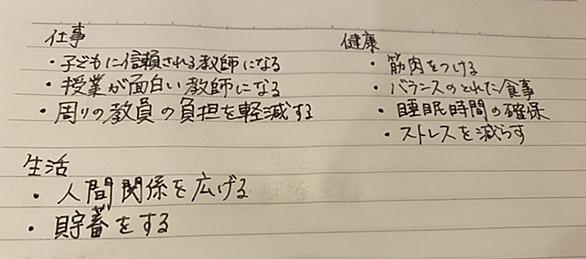 仕事
・子どもに信頼される教師になる
・授業が面白い教師になる
・周りの教員の負担を軽減する
健康
・筋肉をつける
・バランスのとれた食事
・睡眠時間の確保
・ストレスを減らす
生活
・人間関係を広げる
・貯蓄をする